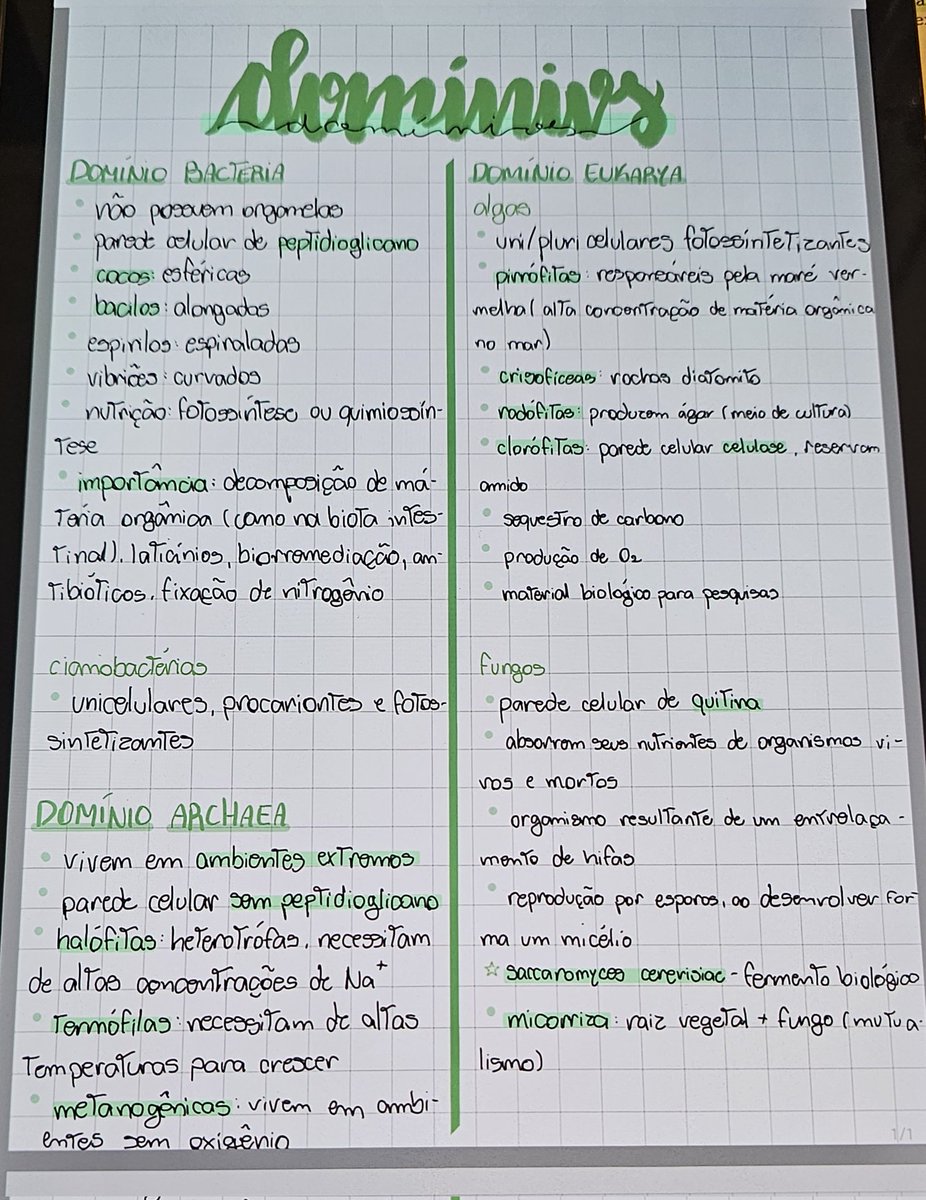 domínios
domínios
DOMÍNIO BACTERIA
não possuem organelas
parede celular de peptidioglicano
cocos: esféricas
bacilos: alongados
espirilos: espiraladas
vibriões: curvados
nutrição: fotossíntese ou quimiossín-
tese
importância: decomposição de má-
teria orgânica (como na biota intes-
tinal), laticínios, biorremediação, an-
tibióticos, fixação de nitrogênio
cianobactérias
unicelulares, procariontes e fotos-
sintetizantes
DOMÍNIO ARCHAEA
vivem em ambientes extremos
parede celular sem peptidioglicano
halófitas: heterotrófas, necessitam
de altas concentrações de Na⁺
termófilas: necessitam de altas
temperaturas para crescer
metanogênicas: vivem em ambi-
entes sem oxigênio
DOMÍNIO EUKARYA
algas
uni/pluricelulares fotossintetizantes
pirrófitas: responsáveis pela maré ver-
melha (alta concentração de matéria orgânica
no mar)
crisofíceas: rochas diatomito
rodófitas: produzem ágar (meio de cultura)
clorófitas: parede celular celulose, reservam
amido
sequestro de carbono
produção de O₂
material biológico para pesquisas
fungos
parede celular de quitina
absorvem seus nutrientes de organismos vi-
vos e mortos
organismo resultante de um entrelaça-
mento de hifas
reprodução por esporos, ao desenvolver for-
ma um micélio
☆ sarcaromyces cerevisiae - fermento biológico
micorriza: raiz vegetal + fungo (mutua-
lismo)
1/1